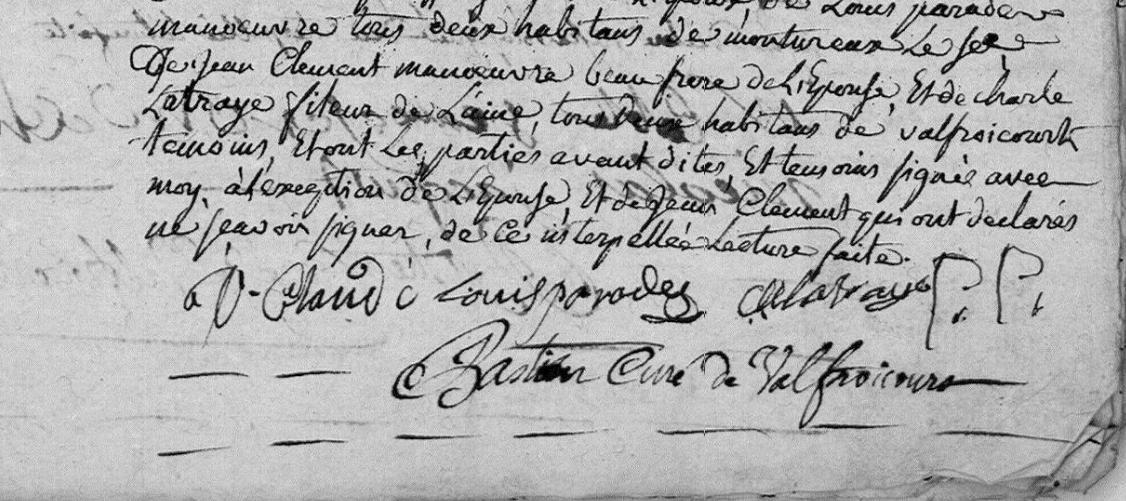 de Louis parades
manoeuvre tous deux habitans de montureux Le sec
De jean Clement manoeuvre beau frere de L'Epouse, Et de charle
Latraye fileur de Laine, tous deux habitans de valfroicourt
temoins, Et ont Les parties avant dites, Et temoins signés avec
moy, à l'exeption de L'Epouse, Et de Jean Clement qui ont declarés
ne sçavoir signer, de ce interpellés Lecture faite.
Claude Louis parades C latraye
Bastien Curé de Valfroicourt